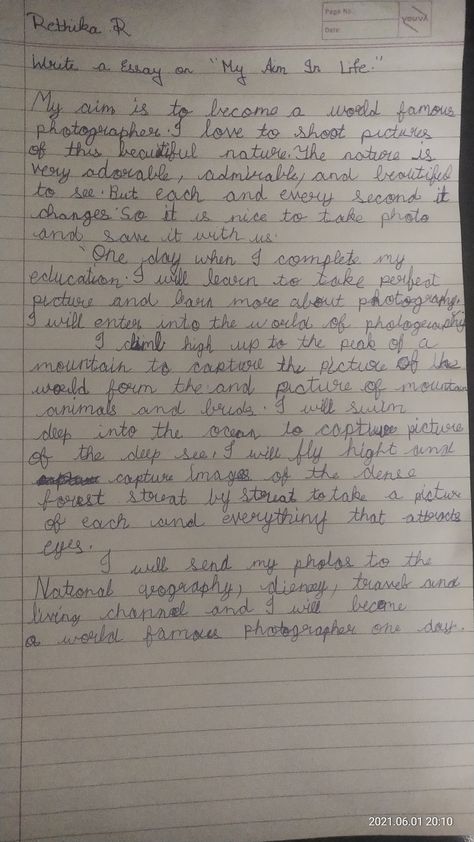 Page No.
Date:
YOUVA
Rethika R
Write a Essay on "My Aim In Life."
My aim is to become a world famous
photographer. I love to shoot pictures
of this beautiful nature. The nature is
very adorable, admirable, and beautiful
to see. But each and every second it
changes. So it is nice to take photo
and save it with us.
"One day when I complete my
education. I will learn to take perfect
picture and learn more about photography.
I will enter into the world of photography
I climb high up to the peak of a
mountain to capture the picture of the
world form the and picture of mountain
animals and brids. I will swim
deep into the ocean to capture picture
of the deep see, I will fly hight and
capture Images of the dense
forest streat by streat to take a picture
of each and everything that attracts
eyes.
I will send my photos to the
National geography, dieney, travel and
living channel and I will become
a world famous photographer one day.
2021.06.01 20:10